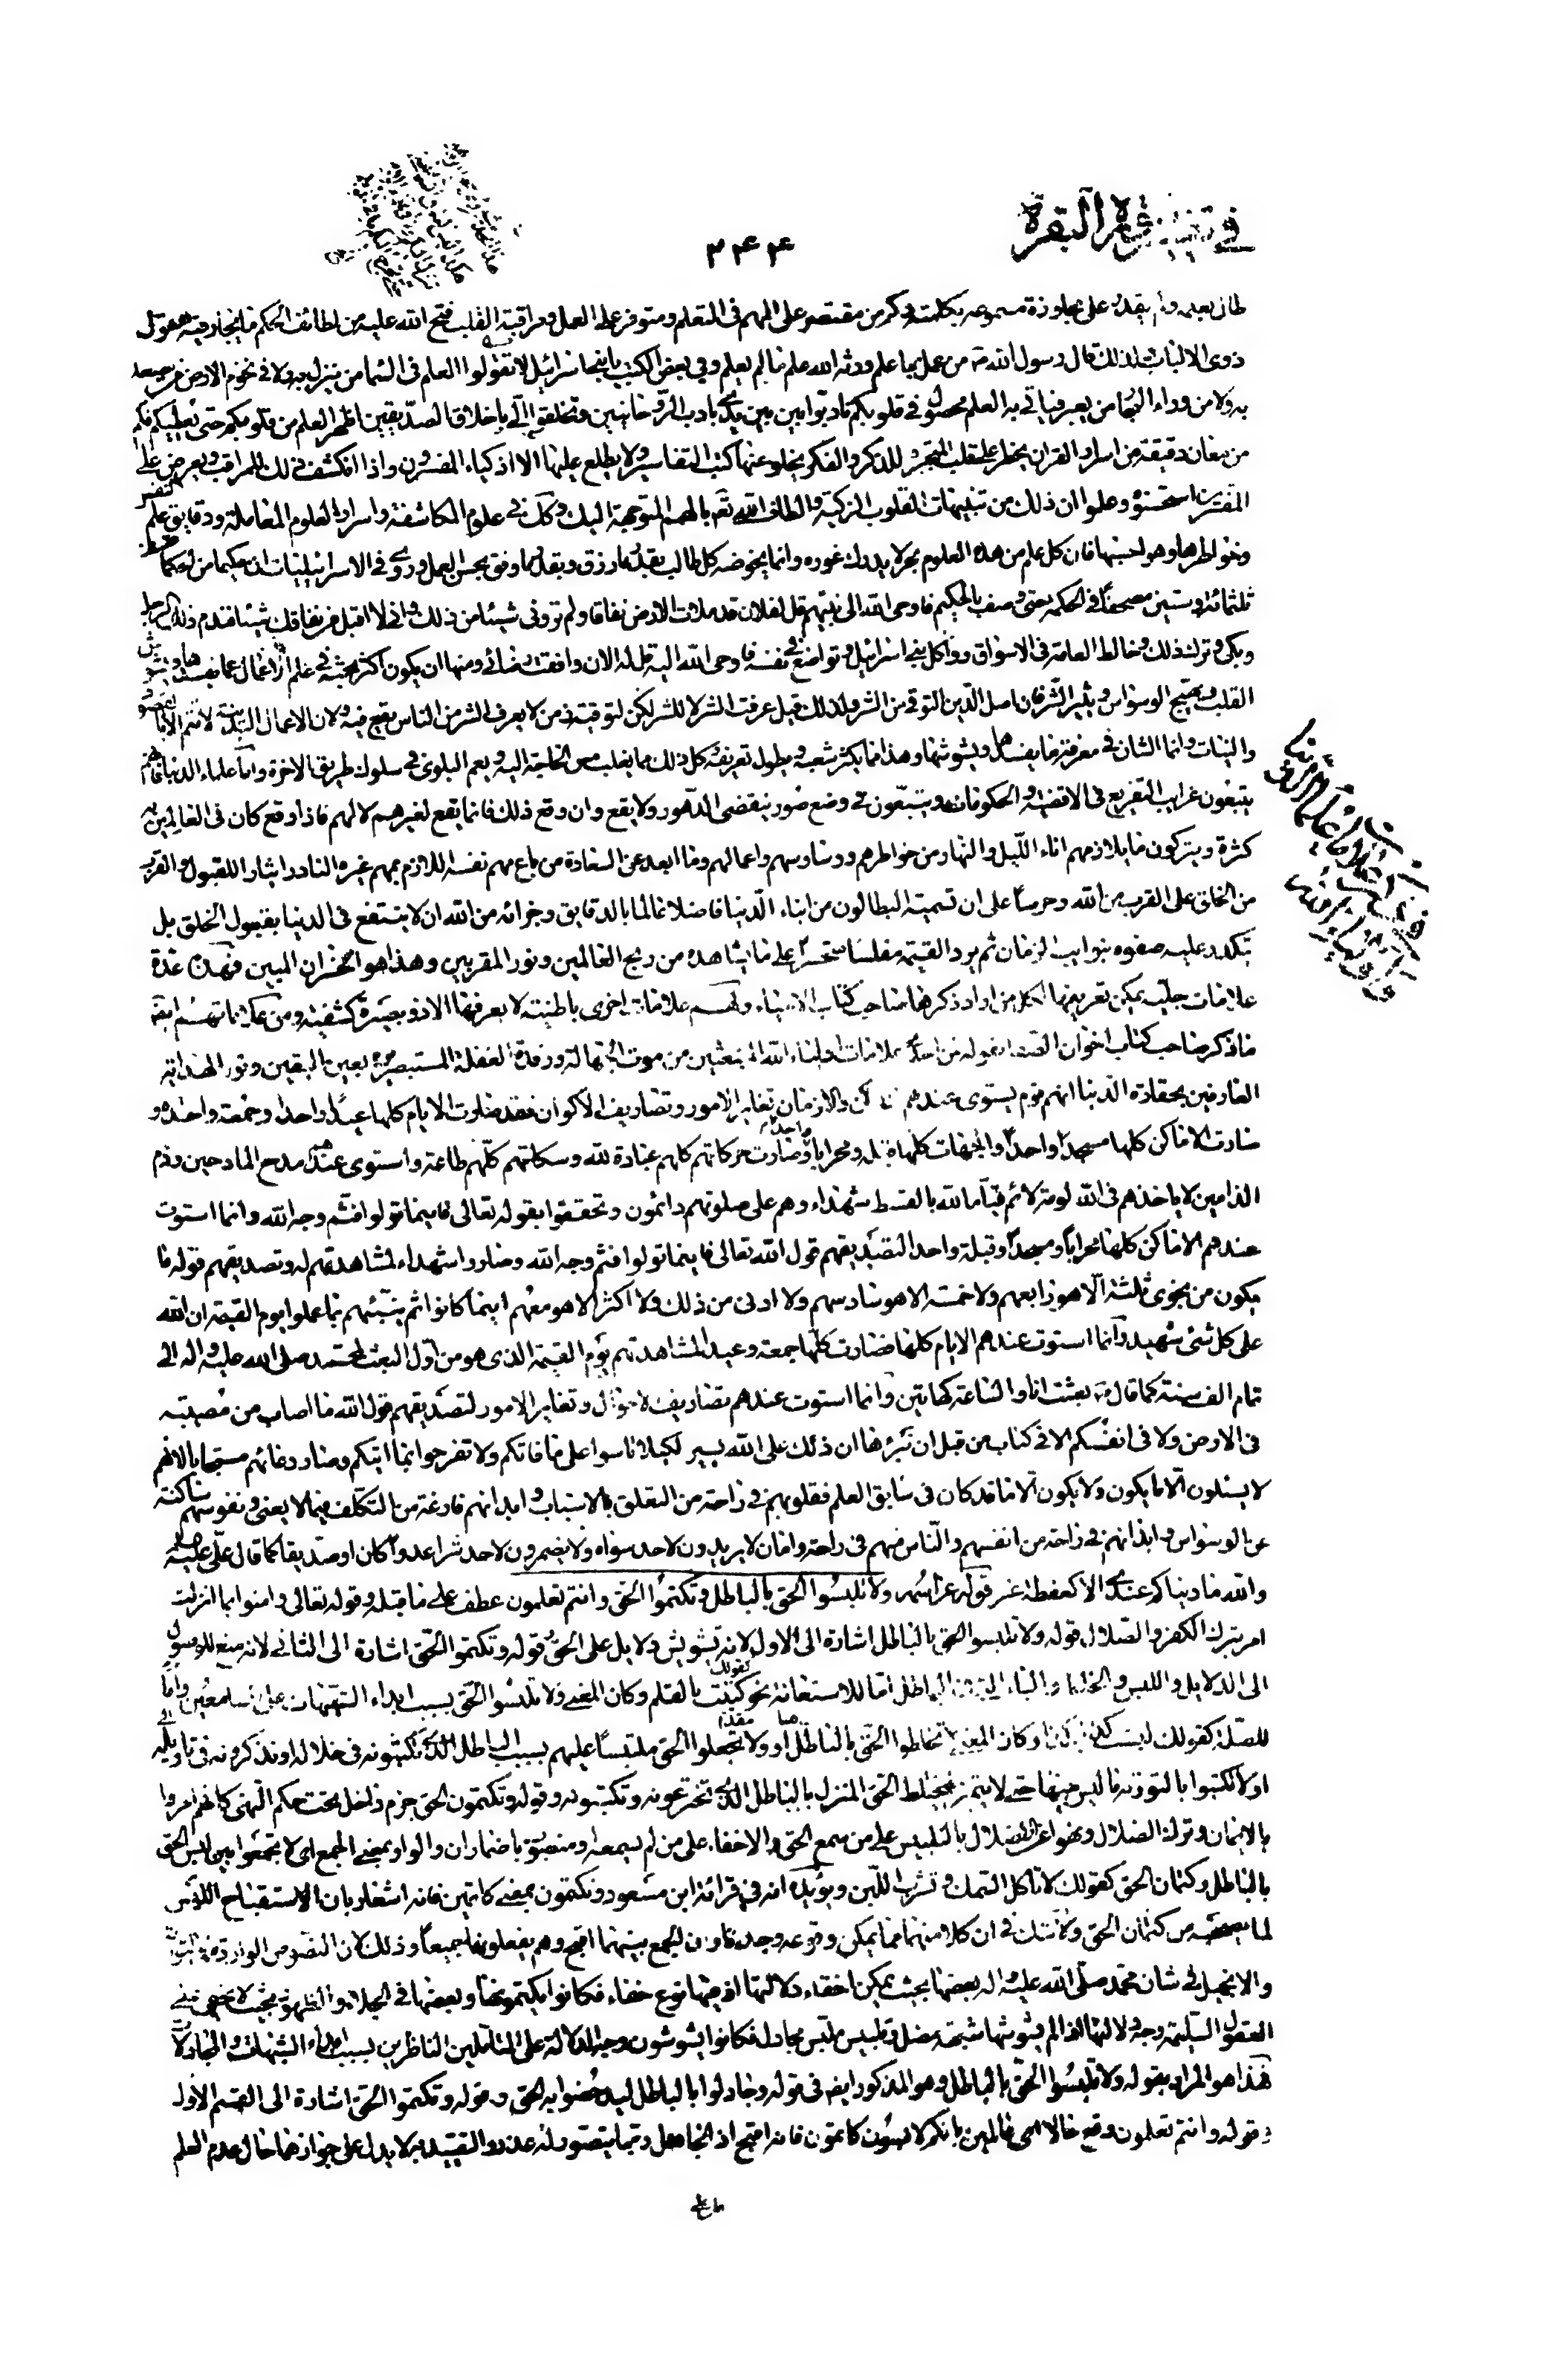 في تفسير سورة البقرة
٢٤٤
طال تعلمه ولم يقدر على مجاوزة مسموعه بكلمة وكم من مقتصر على المهم في التعلم ومتوفر على العمل ومراقبة القلب فتح الله عليه من لطائف الحكم ما يحار فيه عقول
ذوى الالباب ولذلك قال رسول الله ص من عمل بما علم ورثه الله علم ما لم يعلم وفي بعض الكتب يا بنى اسرائيل لا تقولوا العلم في السماء من ينزل به ولا في تخوم الارض من يصعد
به ولا من وراء البحار من يعبر فياتي به العلم مجعول في قلوبكم تادبوا بين يدي بآداب الروحانيين وتخلقوا الي باخلاق الصديقين اظهر العلم من قلوبكم حتى يغطيكم فكم
من معان دقيقة من اسرار القران يخطر على قلب المتجرد للذكر والفكر يخلو عنها كتب التفاسير ولا يطلع عليها الا اذكياء المفسرون واذا انكشف ذلك للمراقب وعرض على
المفسرين استحسنوه وعلموا ان ذلك من تنبيهات القلوب الزكية والطاف الله تعم بالهمم المتوجهة اليك وكك في علوم المكاشفة واسرار العلوم المعاملة ودقايق علم
وخواطرها وهواجسها فان كل علم من هذه العلوم بحر لا يدرك غوره وانما يخوضه كل طالب بقدر ما رزق وبقدر ما وفق بحسن العمل وروى في الاسرائيليات ان حكيما من الحكماء
ثلثمائة وستين مصحفا في الحكمة حتى وصف بالحكيم فاوحى الله الى نبيهم قل لفلان قد ملات الارض نفاقا ولم تردنى شيئا من ذلك وانى لا اقبل من نفاقك شيئا فندم ذلك الرجل
وبكى وترك ذلك وخالط العامة في الاسواق وواكل بنى اسرائيل وتواضع في نفسه فاوحى الله اليه قل له الان وافقت رضائى ومنها ان يكون اكثر بحثه في علم الاعمال عما يفسدها ويشوش
القلب ويهيج الوسواس ويثير الشر فان اصل الدين التوقى من الشر ولذلك قيل عرفت الشر لا للشر لكن لتوقيه ومن لا يعرف الشر من الناس يقع فيه ولان الاعمال البدنية
والنيات وانما الشان في معرفة ما يفسدها ويشوشها وهذا مما يكثر شعبه ويطول تعريفه وكل ذلك مما يغلب مس الحاجة اليه ويعم البلوى في سلوك طريق الاخرة واما علماء الدنيا فانهم
يتبعون غرايب التفريع في الاقضية والحكومات ويتبعون في وضع صور ينقضى الدهور ولا يقع وان وقع ذلك فانما يقع لغيرهم لا لهم فاذا وقع كان في القائمين به
كثرة ويتركون ما يلازمهم اناء الليل والنهار من خواطرهم ووساوسهم واعمالهم وما ابعد عن السعادة من باع مهم نفسه اللازم بمهم غيره النادر ايثارا للقبول والقرب
من الخلق على القرب من الله وحرصا على ان تسميه البطالون من ابناء الدنيا فاضلا عالما بالدقايق وجزائه من الله ان لا ينتفع في الدنيا بقبول الخلق بل
يتكدر عليه صفوه بنوايب الزمان ثم يرد القيمة مفلسا متحسرا على ما يشاهده من ربح العالمين ونور المقربين وهذا هو الخسران المبين فهذه عدة
علامات جلية يمكن تعريفها لكل من اراد ذكرها صاحب كتاب الاحياء ولهم علامات اخرى باطنية لا يعرفها الا ذو بصيرة كشفية ومن علاماتهم ايضا
ما ذكر صاحب كتاب اخوان الصفا بقوله من احد علامات اولياء الله المنبعثين من موت الجهالة ورقدة الغفلة المستبصرين بعين اليقين ونور الهداية
العارفين بحقارة الدنيا انهم قوم يستوى عندهم الاماكن والازمان وتغاير الامور وتصاريف الاكوان فقد صارت الايام كلها عيدا واحدا وجمعة واحدة و
صارت الاماكن كلها مسجدا واحدا والجهات كلها قبلة ومحرابا واحدا وصارت حركاتهم كلها عبادة لله وسكناتهم كلهم طاعة واستوى عندهم مدح المادحين وذم
الذامين لا ياخذهم في الله لومة لائم قياما لله بالقسط شهداء وهم على صلوتهم دائمون وتحققوا بقوله تعالى فاينما تولوا فثم وجه الله وانما استوت
عندهم الاماكن كلها محرابا ومسجدا وقبلة واحد لتصديقهم قول الله تعالى فاينما تولوا فثم وجه الله وصاروا شهداء لمشاهدتهم له وتصديقهم قوله ما
يكون من نجوى ثلثة الا هو رابعهم ولا خمسة الا هو سادسهم ولا ادنى من ذلك ولا اكثر الا هو معهم اينما كانوا ثم ينبئهم بما عملوا يوم القيمة ان الله
على كل شئ شهيد وانما استوت عندهم الايام كلها فصارت كلها جمعة وعيدا لمشاهدتهم يوم القيمة الذى هو من اول البعث لمحمد صلى الله عليه واله الى
تمام الف سنة كما قال ص بعثت انا والساعة كهاتين وانما استوت عندهم تصاريف الاحوال وتغاير الامور لتصديقهم قول الله ما اصاب من مصيبة
في الارض ولا في انفسكم الا في كتاب من قبل ان نبرءها ان ذلك على الله يسير لكيلا تاسوا على ما فاتكم ولا تفرحوا بما اتيكم وصار دعائهم مستجابا لانهم
لا يسئلون الا ما يكون ولا يكون الا ما قد كان في سابق العلم فقلوبهم في راحة من التعلق بالاسباب وابدانهم فارغة من التكلف فيما لا يعنى ونفوسهم ساكنة
عن الوسواس وابدانهم في راحة من انفسهم والناس منهم في راحة وامان لا يريدون لاحد سواه ولا يضمرون لاحد شرا عدوا كان او صديقا كما قال على عليه السلم
والله ما دنياكم عندى الا كعفطة عنز قوله عز اسمه ولا تلبسوا الحق بالباطل وتكتموا الحق وانتم تعلمون عطف على ما قبله وقوله تعالى وامنوا بما انزلت
امر بترك الكفر والضلال قوله ولا تلبسوا الحق بالباطل اشارة الى الاول لانه تشويش دلايل على الحق وقوله وتكتموا الحق اشارة الى الثانى لانه منع للوصول
الى الدلايل واللبس والخلط والباء التى في الباطل اما للاستعانة نحو كقولك كتبت بالقلم وكان المعنى ولا تلبسوا الحق بسبب ايراد الشبهات على السامعين واما
للصلة كقولك لبست كذا بكذا وكان المعنى لا تخلطوا الحق بالباطل او ولا تجعلوا الحق ملتبسا عليهم بسبب الباطل الذى تكتبونه في خلاله او تذكرونه في تاويله
او لا تكتبوا بالتورية ما ليس فيها حتى لا يتميز فيختلط الحق المنزل بالباطل الذى تخترعونه وتكتبونه وقوله وتكتمون الحق جزم داخل تحت حكم النهى كانهم امروا
بالايمان وترك الضلال ونهوا عن الاضلال بالتلبيس على من سمع الحق والاخفاء على من لم يسمعه او منصوب باضمار ان والواو بمعنى الجمع اى لا تجمعوا بين لبس الحق
بالباطل وكتمان الحق كقولك لا تاكل السمك وتشرب اللبن ويؤيده انه في قرائة ابن مسعود وتكتمون بمعنى كاتمين فانه اشعار بان الاستقباح اللبس
لما يصحبه من كتمان الحق ولا شك في ان كلا منهما مما يمكن وقوعه وحده فاذن الجمع بينهما اقبح وهم يفعلونها جميعا وذلك لان النصوص الواردة في التورية
والانجيل في شان محمد صلى الله عليه واله بعضها بحيث يمكن اخفاء دلالتها اذ فيها نوع خفاء فكانوا يكتمونها وبعضها في الجلاء والظهور بحيث لا يخفى على
العقول السليمة وجه دلالتها اذا لم يشوشها شبهة مضل وتلبيس ملبس مجادل فكانوا يشوشون وجه الدلالة على المتاملين الناظرين بسبب القاء الشبهات والمجادلات
فهذا هو المراد بقوله ولا تلبسوا الحق بالباطل وهو المذكور ايضا في قوله وجادلوا بالباطل ليدحضوا به الحق وقوله وتكتموا الحق اشارة الى القسم الاول
وقوله وانتم تعلمون وقع حالا اى عالمين بانكم لابسون كاتمون فانه اقبح اذ الجاهل ربما يتصور له عذر والتقييد به لا يدل على جوازها حال عدم العلم